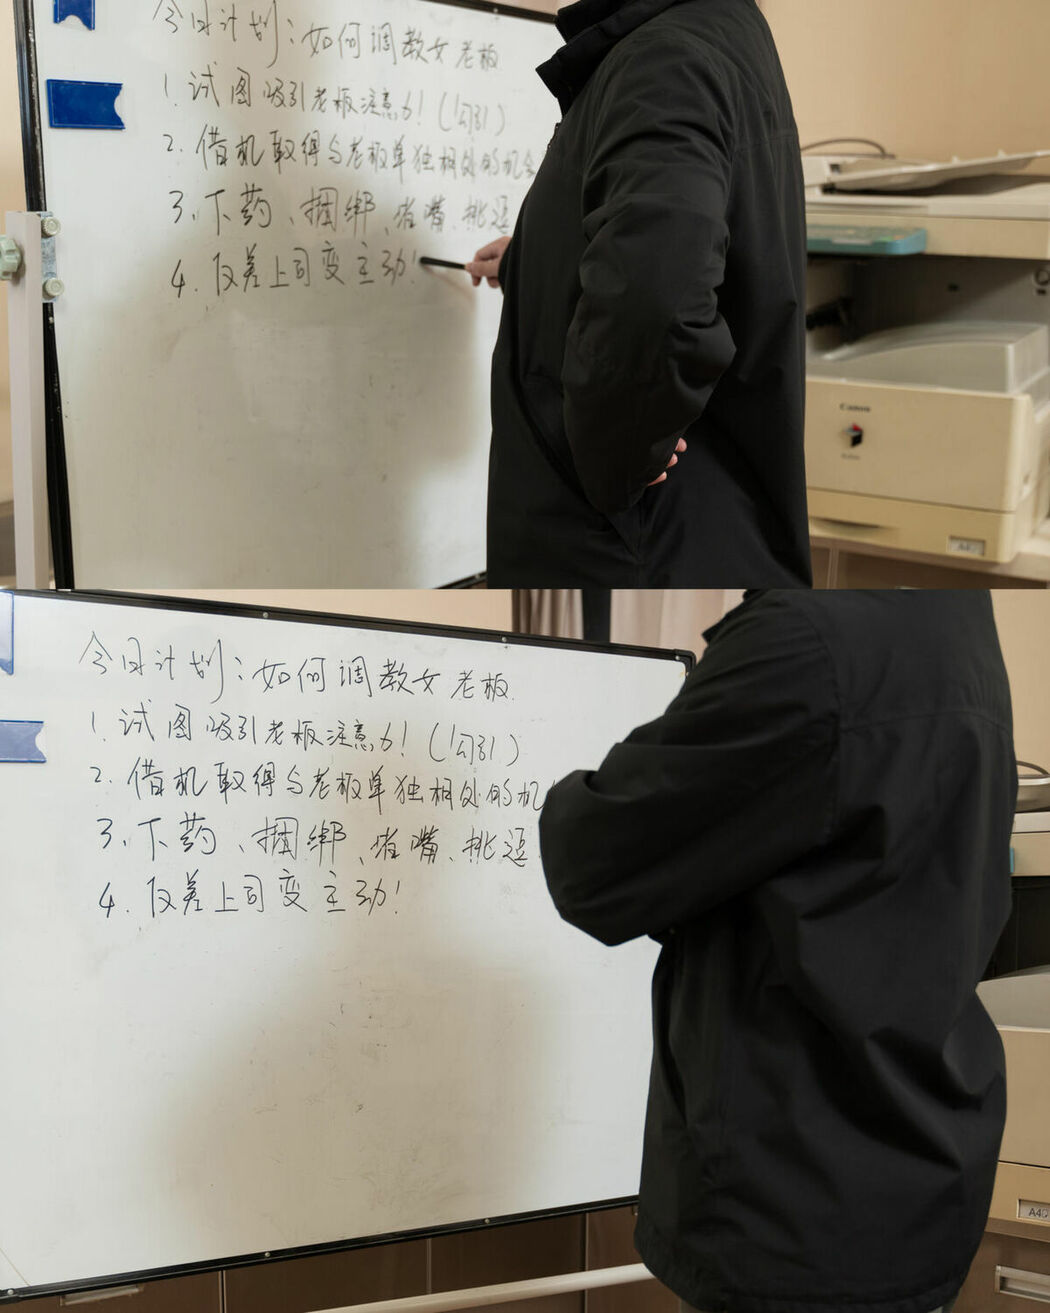 今日计划:如何调教女老板
1. 试图吸引老板注意力!(勾引)
2. 借机取得与老板单独相处的机会
3. 下药、捆绑、堵嘴、挑逗
4. 反差上司变主动!
Canon
A4
今日计划:如何调教女老板.
1. 试图吸引老板注意力!(勾引)
2. 借机取得与老板单独相处的机
3. 下药、捆绑、堵嘴、挑逗
4. 反差上司变主动!
A4